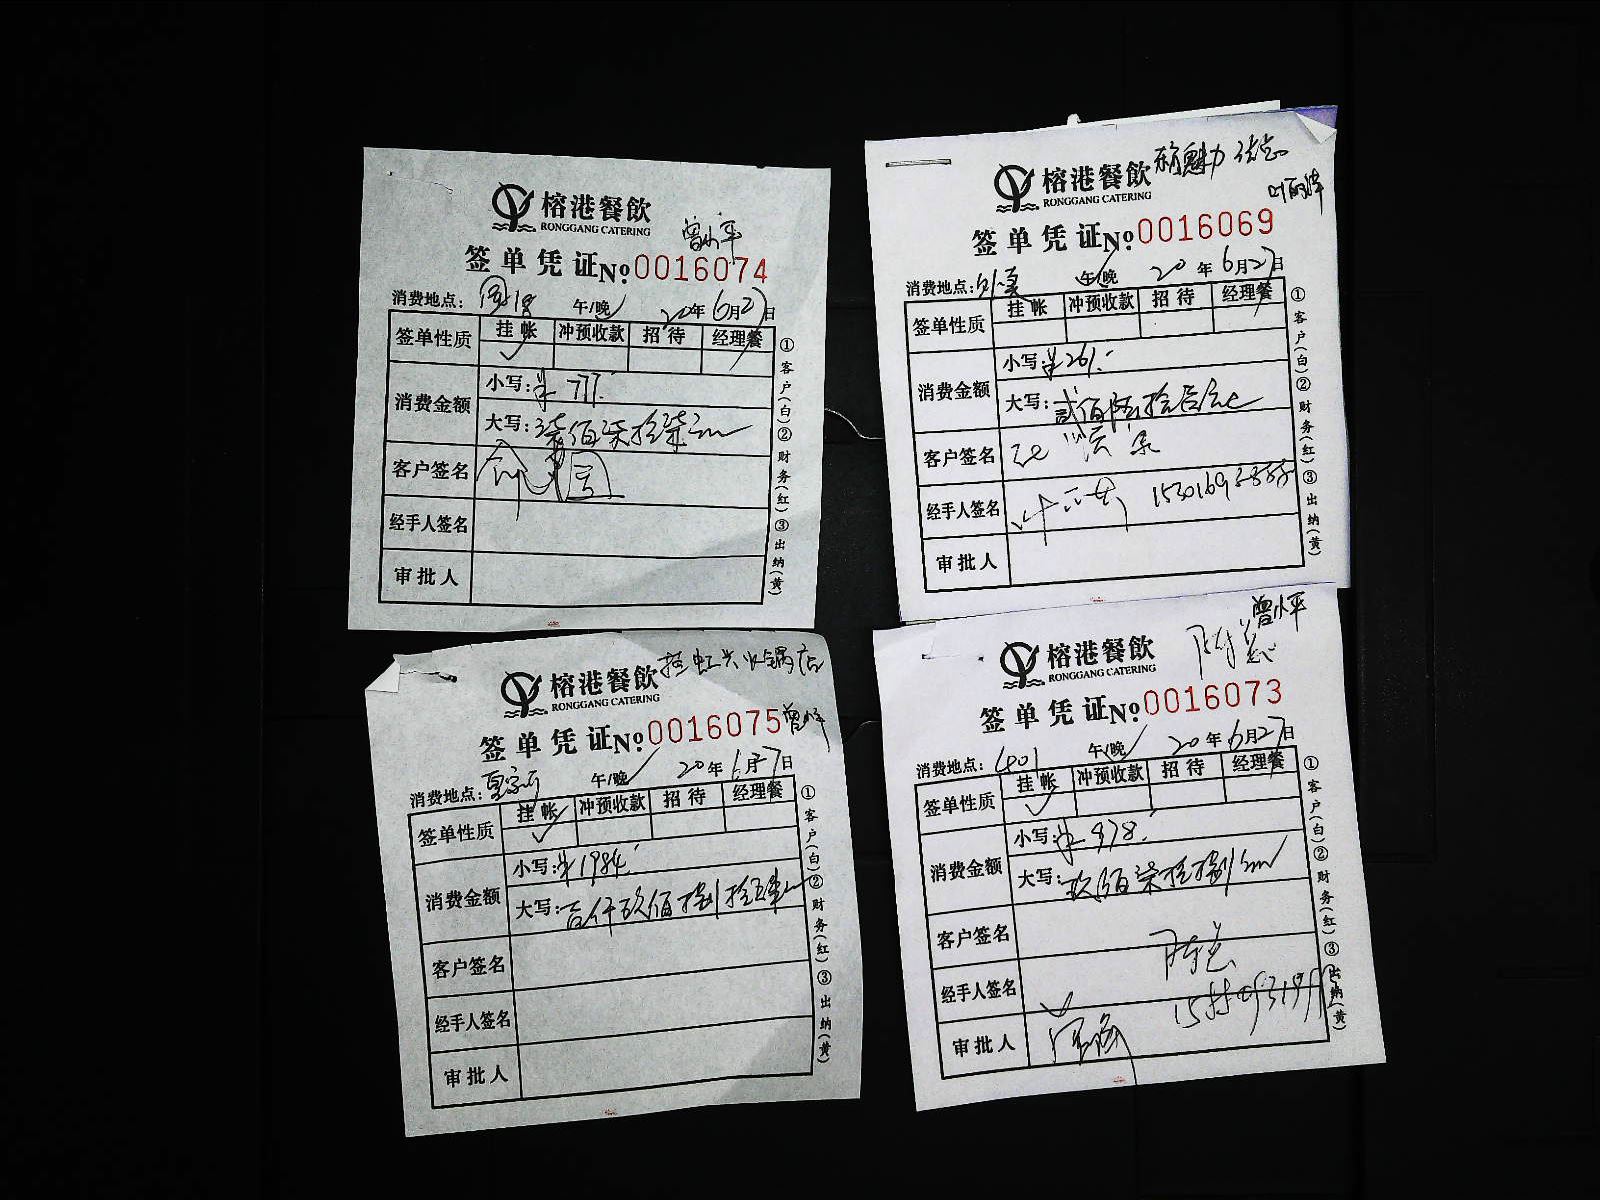 榕港餐飲
RONGGANG CATERING
曾小平
签单凭证 №0016074
消费地点： 午/晚 20年6月27日
签单性质 挂帐 冲预收款 招待 经理餐
消费金额 小写：¥777.
大写：柒佰柒拾柒元
客户签名
经手人签名
审批人
①客户(白)②财务(红)③出纳(黄)
榕港餐飲 魅力 张总
RONGGANG CATERING
签单凭证 №0016069
消费地点： 午/晚 20年6月27日
签单性质 挂帐 冲预收款 招待 经理餐
消费金额 小写：¥261.
大写：贰佰陆拾壹元
客户签名
经手人签名
审批人
①客户(白)②财务(红)③出纳(黄)
榕港餐飲 火锅店
RONGGANG CATERING
签单凭证 №0016075 曾小平
消费地点： 午/晚 20年6月27日
签单性质 挂帐 冲预收款 招待 经理餐
消费金额 小写：¥1984.
大写：壹仟玖佰捌拾肆元
客户签名
经手人签名
审批人
①客户(白)②财务(红)③出纳(黄)
曾小平
榕港餐飲 陈总
RONGGANG CATERING
签单凭证 №0016073
消费地点：401 午/晚 20年6月27日
签单性质 挂帐 冲预收款 招待 经理餐
消费金额 小写：¥978.
大写：玖佰柒拾捌元
客户签名
经手人签名 陈总
审批人
①客户(白)②财务(红)③出纳(黄)